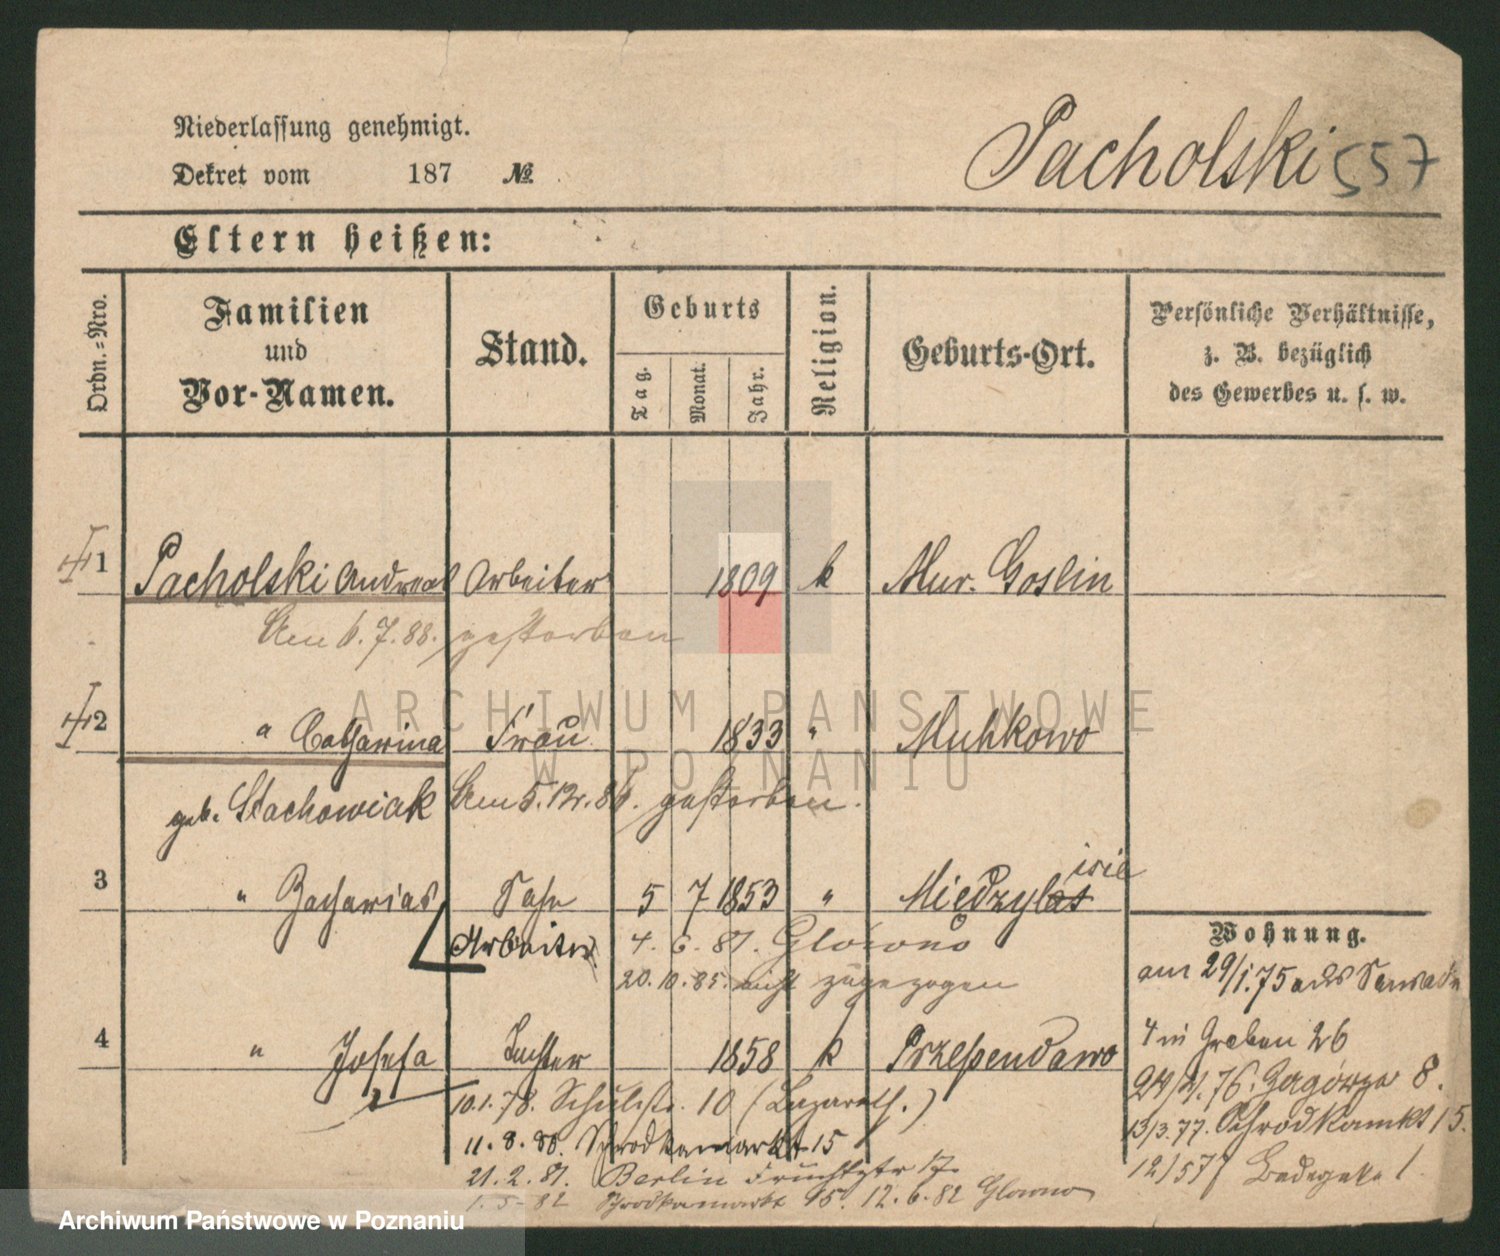 Niederlassung genehmigt.
Dekret vom 187 №
Pacholski 557
Eltern heißen:
Ordn.-Nro.
Familien
und
Vor-Namen.
Stand.
Geburts
Tag.
Monat.
Jahr.
Religion.
Geburts-Ort.
Persönliche Verhältnisse,
z. B. bezüglich
des Gewerbes u. s. w.
1 Pacholski Andreas Arbeiter 1809 k Mur. Goslin
Am 6.7.88. gestorben
2 " Catharina Frau 1833 " Muhkowo
geb. Stachowiak Am 5.12.86. gestorben.
3 " Zacharias Sohn 5 7 1853 " Miedzylas
isie
Arbeiter 4. 6. 81. Glówno
20.10.85. nicht zugezogen
4 " Josefa Tochter 1858 k Przependowo
10.1.78. Schulstr. 10 (Lazareth.)
11.8.80. Schrodkamarkt 15
21.2.81. Berlin Fruchtstr 17
1.5-82 Schrodkamarkt 15. 12.6.82 Glowno
Wohnung.
am 29/1.75 aus
4 in Graben 26
76. Zagórze 8.
13/3.77. Schrodkamkt 15.
12/5 77
ARCHIWUM PAŃSTWOWE
W POZNANIU
Archiwum Państwowe w Poznaniu